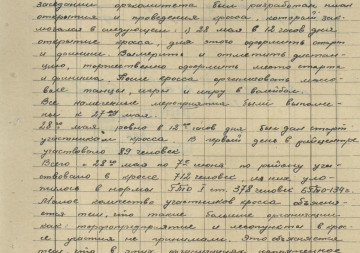 заседании оргкомитета был разработан план
открытия и проведения кросса, который зак-
лючался в следующем: 1) 28 мая в 12 часов дня
открытие кросса, для этого оформить старт
и финиш
торжественно оформить место старта
и финиша. После кросса организовать массо-
вые танцы, игры и игру в волейбол.
Все намеченные мероприятия были выполне-
ны к 27 мая.
28го мая, ровно в 12 часов дня был дан старт
участникам кросса. В первый день в райцентре
участвовало 89 человек.
Всего с 28го мая по 7е июня по району уча-
ствовало в кроссе 712 человек из них уло-
жилось в нормы ГТО I ст. 378 человек БГТО-134ч.
Малое количество участников кросса объясня-
ется тем, что такие большие организации
как торфопредприятие и лесопункты в крос-
се участия не принимали. Это объясняется
тем, что в этих организациях